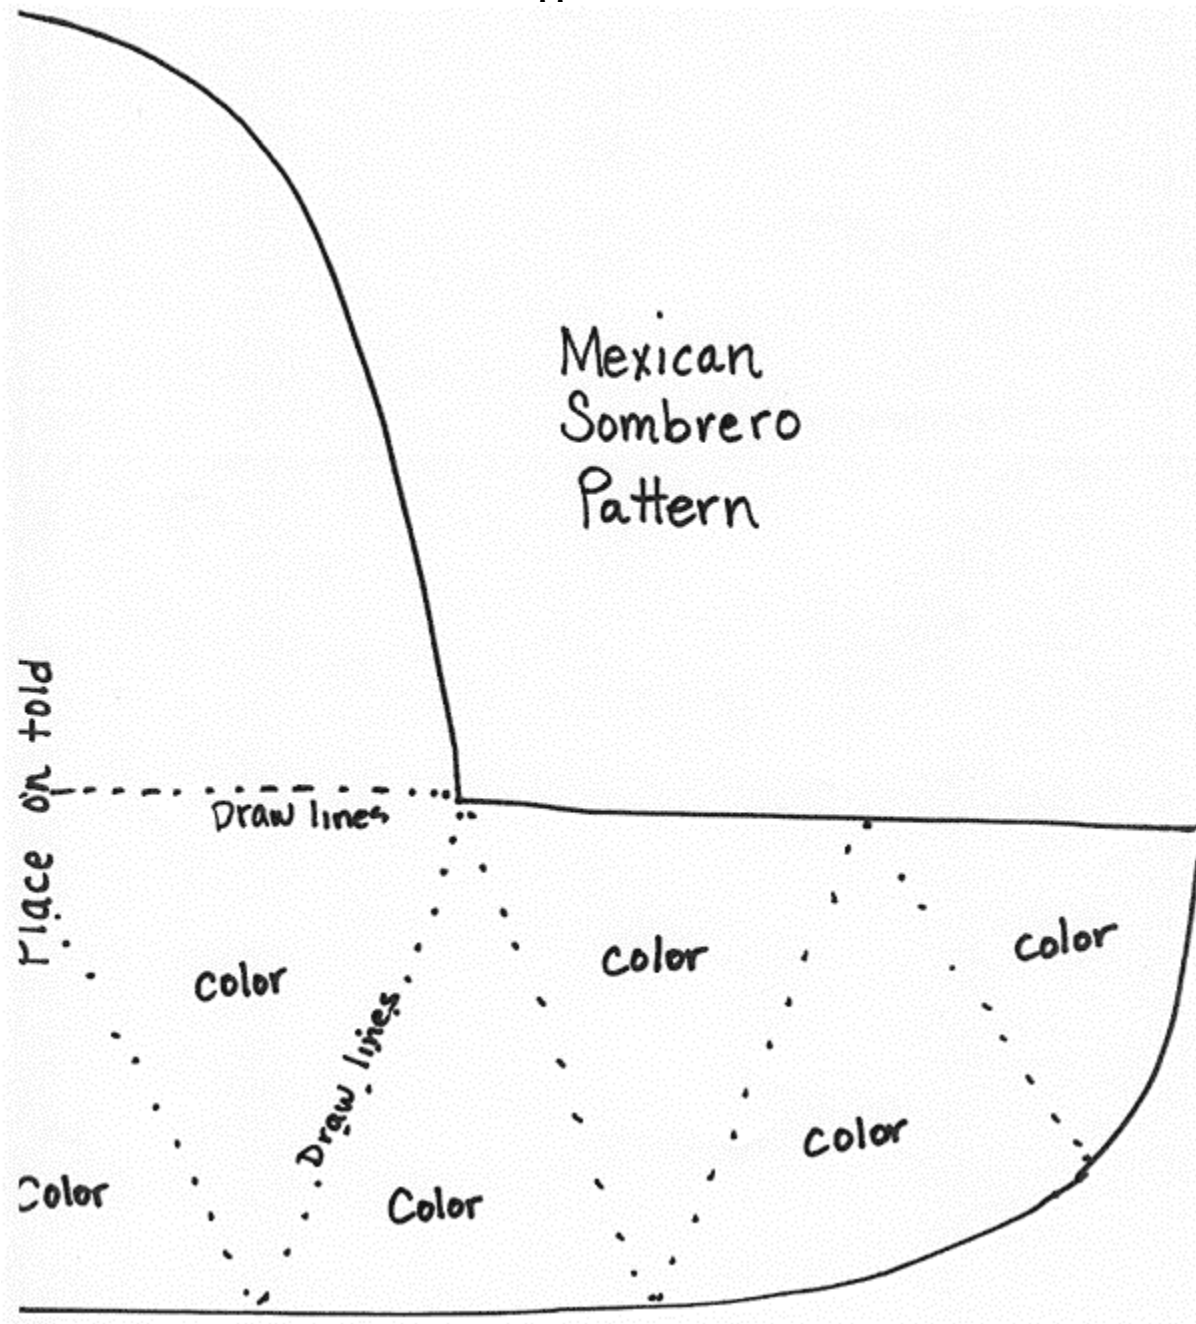 Mexican
Sombrero
Pattern
Place on fold
Draw lines
Color
Color
Color
Draw lines
Color
Color
Color